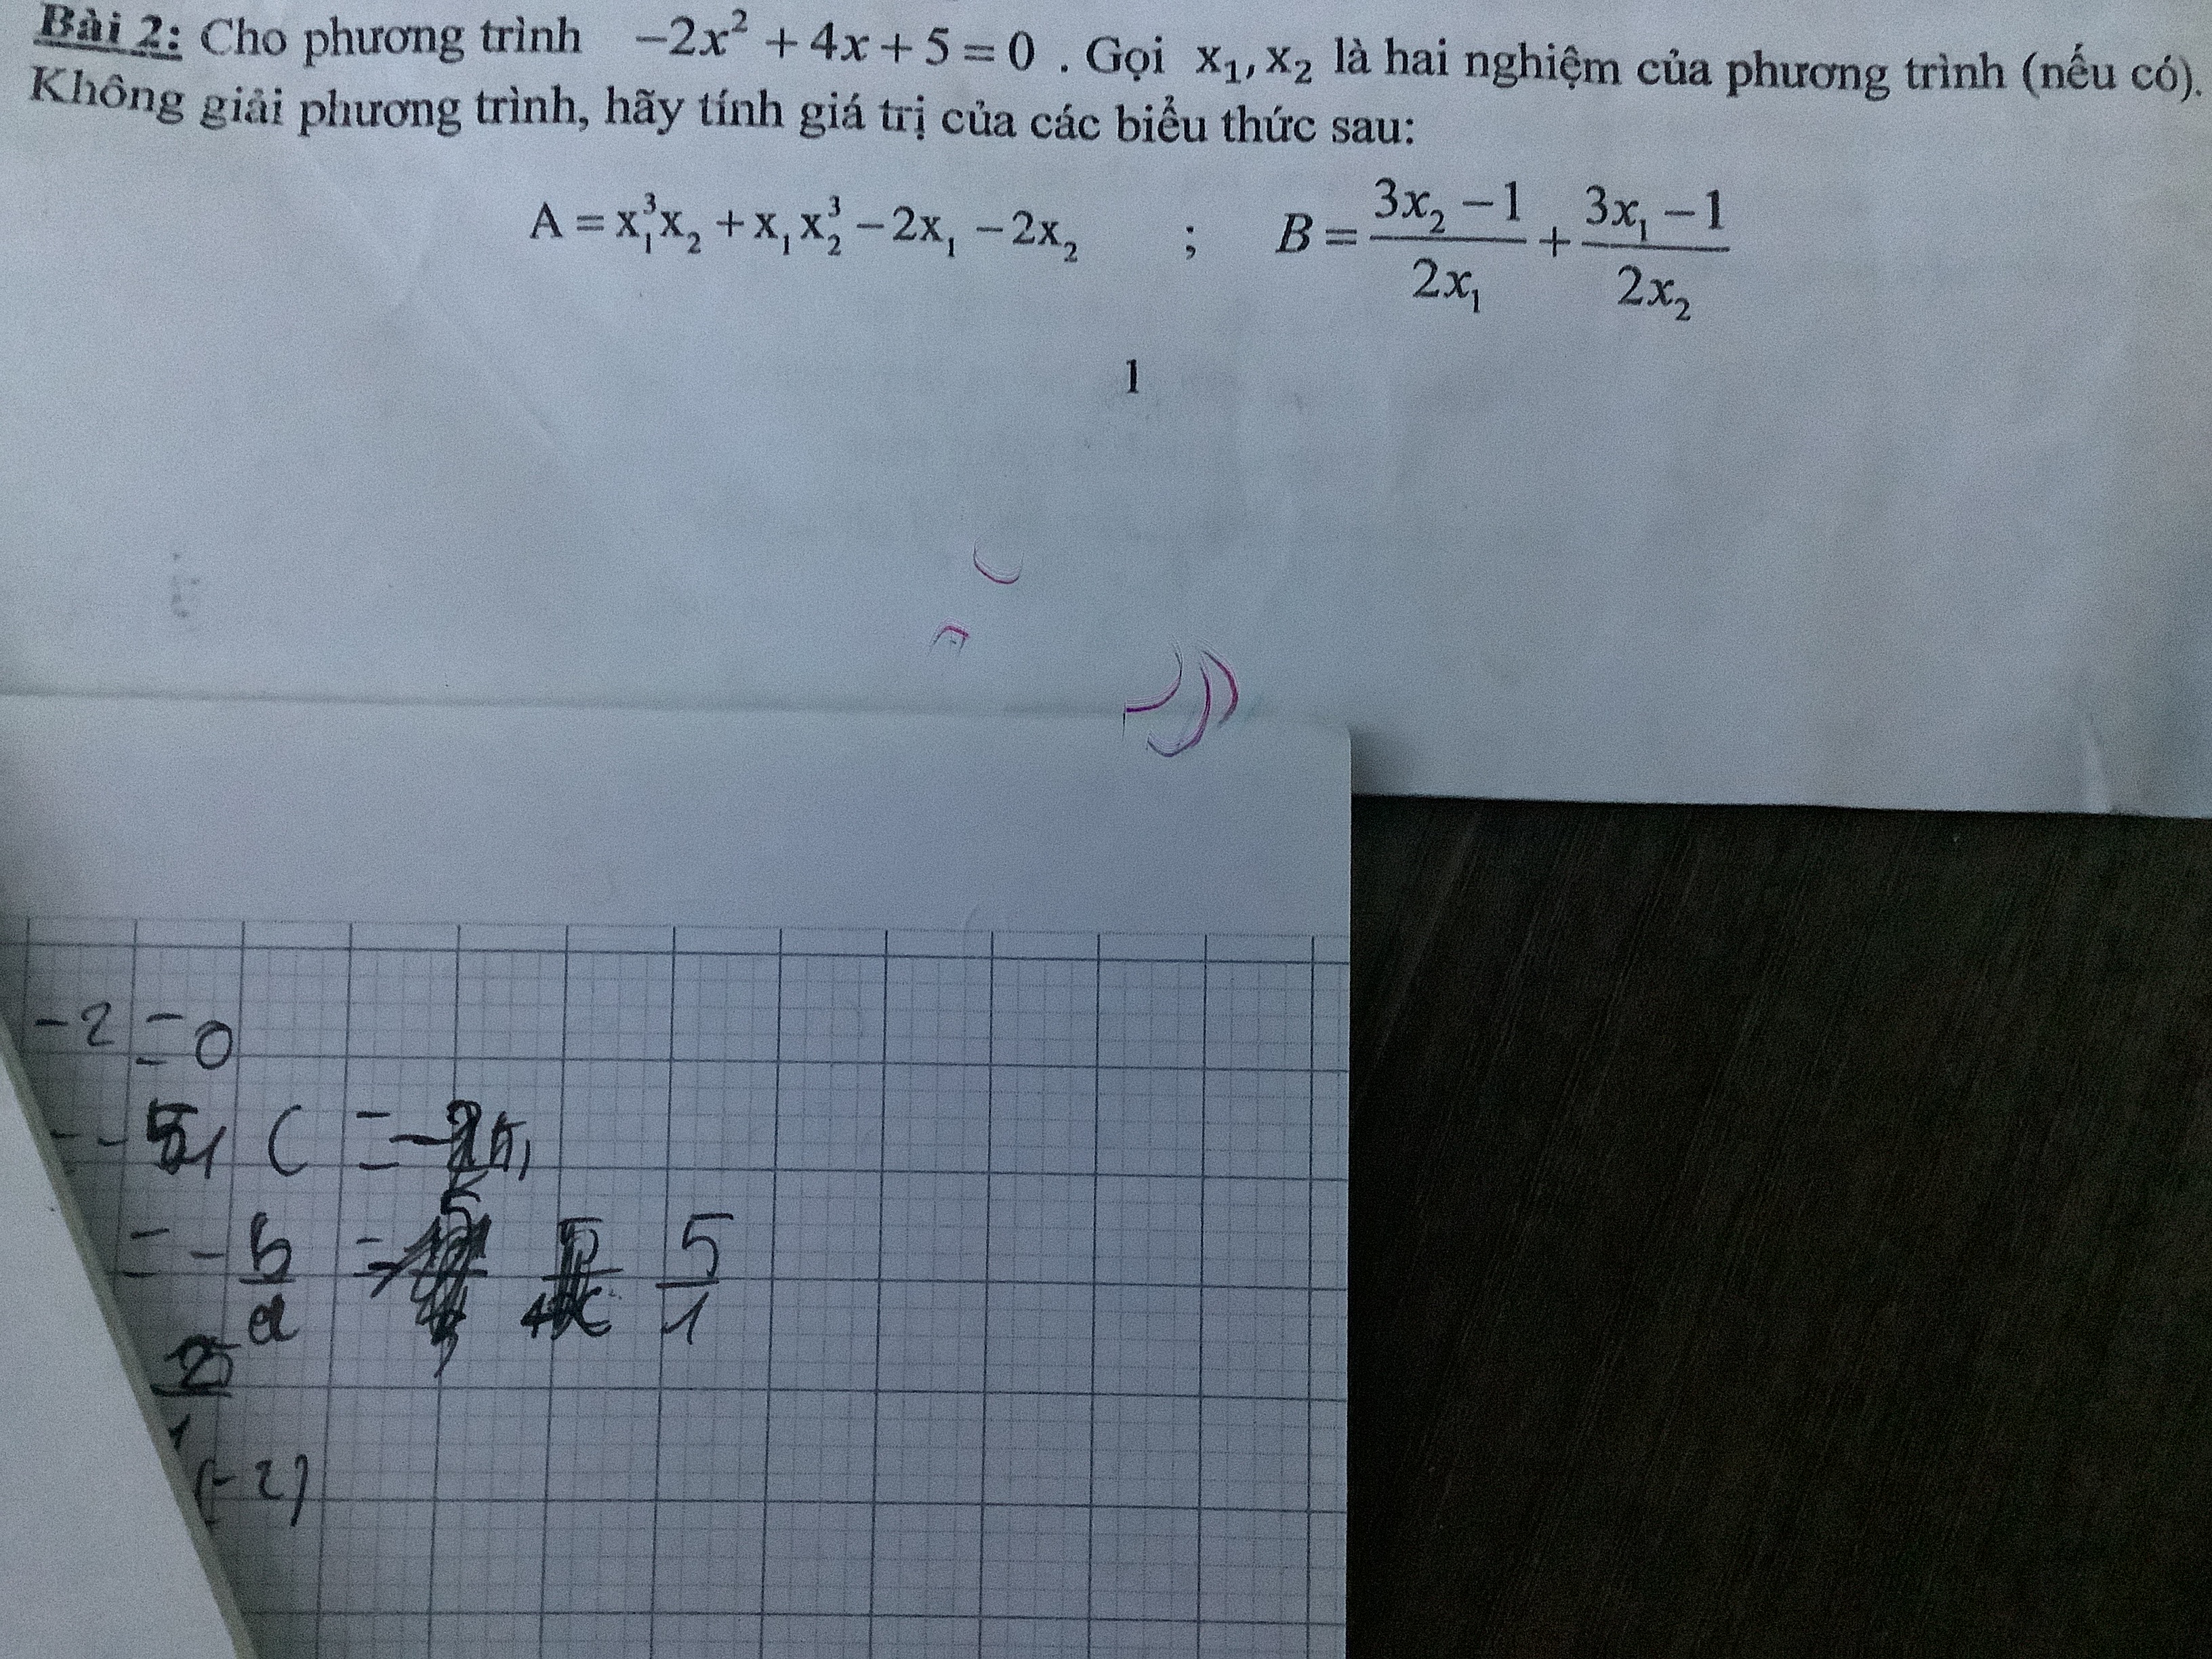 Bài 2: Cho phương trình −2x² + 4x + 5 = 0 . Gọi x₁, x₂ là hai nghiệm của phương trình (nếu có).
Không giải phương trình, hãy tính giá trị của các biểu thức sau:
A = x₁³x₂ + x₁x₂³ − 2x₁ − 2x₂ ; B = (3x₂ − 1)/(2x₁) + (3x₁ − 1)/(2x₂)
1
-2 = 0
C =
= -b/a = 5/1
(-2)